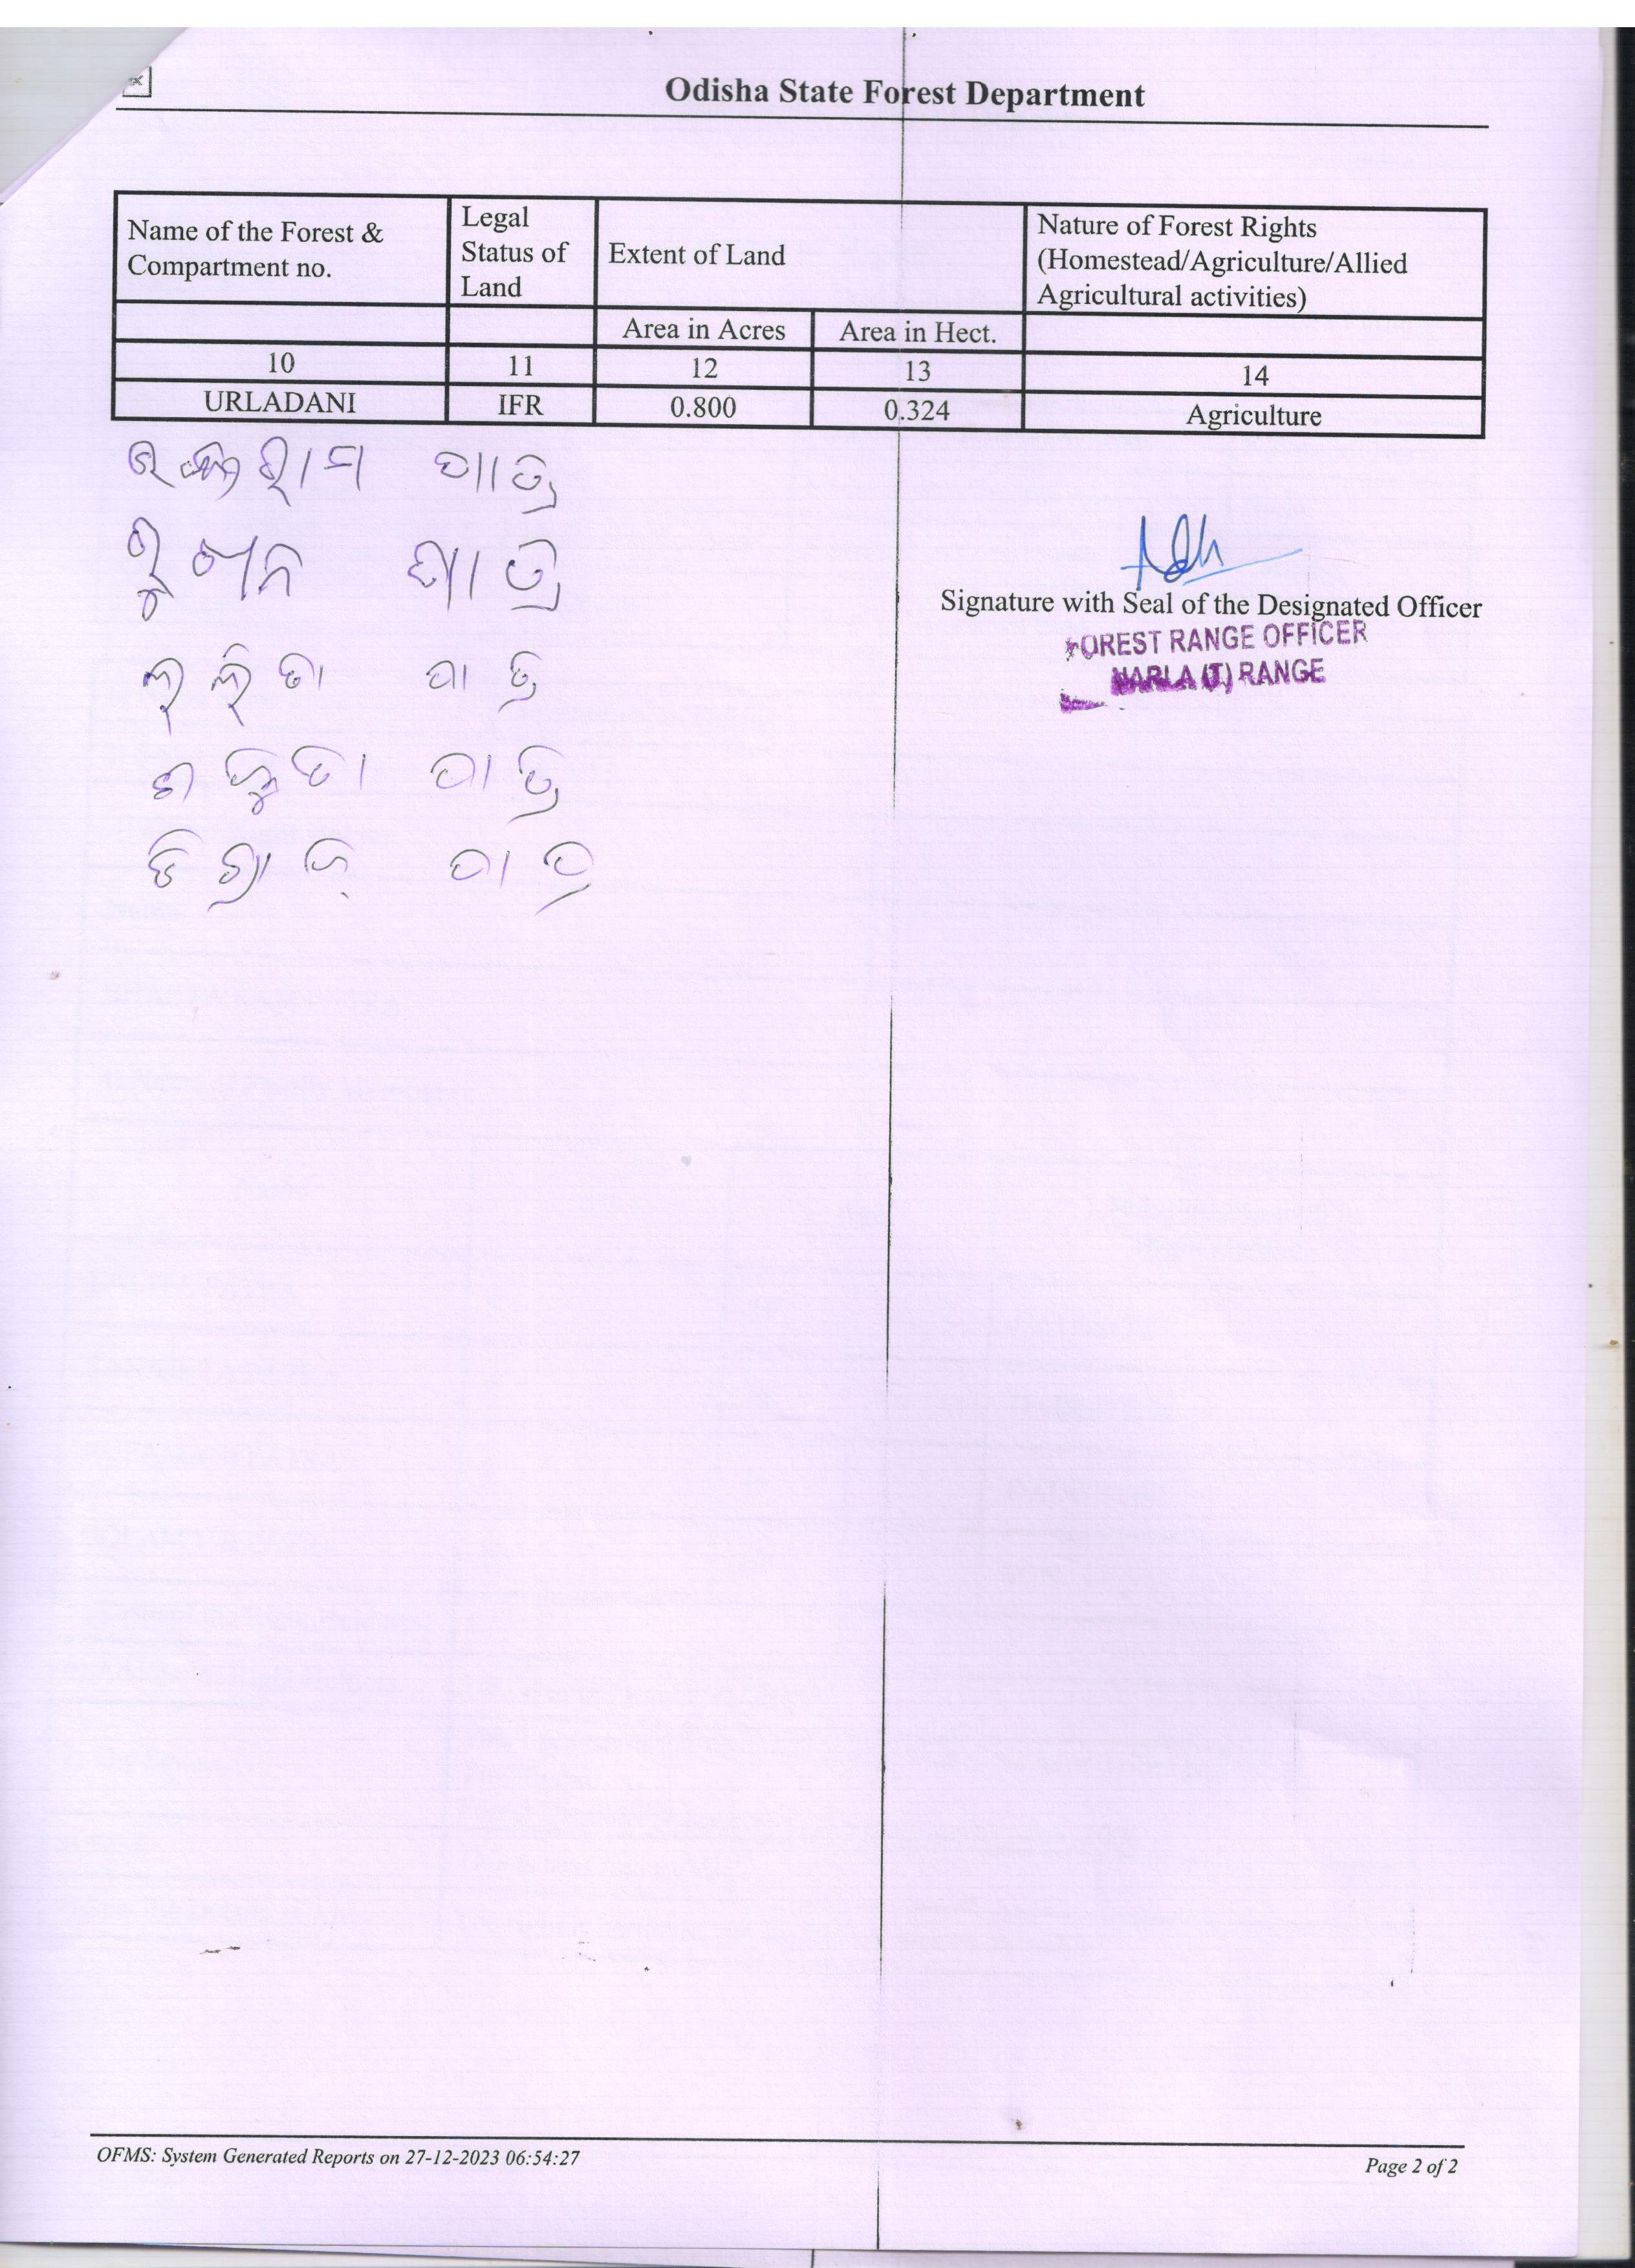 Odisha State Forest Department
Name of the Forest & Compartment no.
Legal Status of Land
Extent of Land
Nature of Forest Rights (Homestead/Agriculture/Allied Agricultural activities)
Area in Acres Area in Hect.
10 11 12 13 14
URLADANI IFR 0.800 0.324 Agriculture
ପାତ୍ର
ପାତ୍ର
ଲଲିତା ପାତ୍ର
ପାତ୍ର
ପାତ୍ର
Signature with Seal of the Designated Officer
FOREST RANGE OFFICER
NARLA (T) RANGE
OFMS: System Generated Reports on 27-12-2023 06:54:27
Page 2 of 2